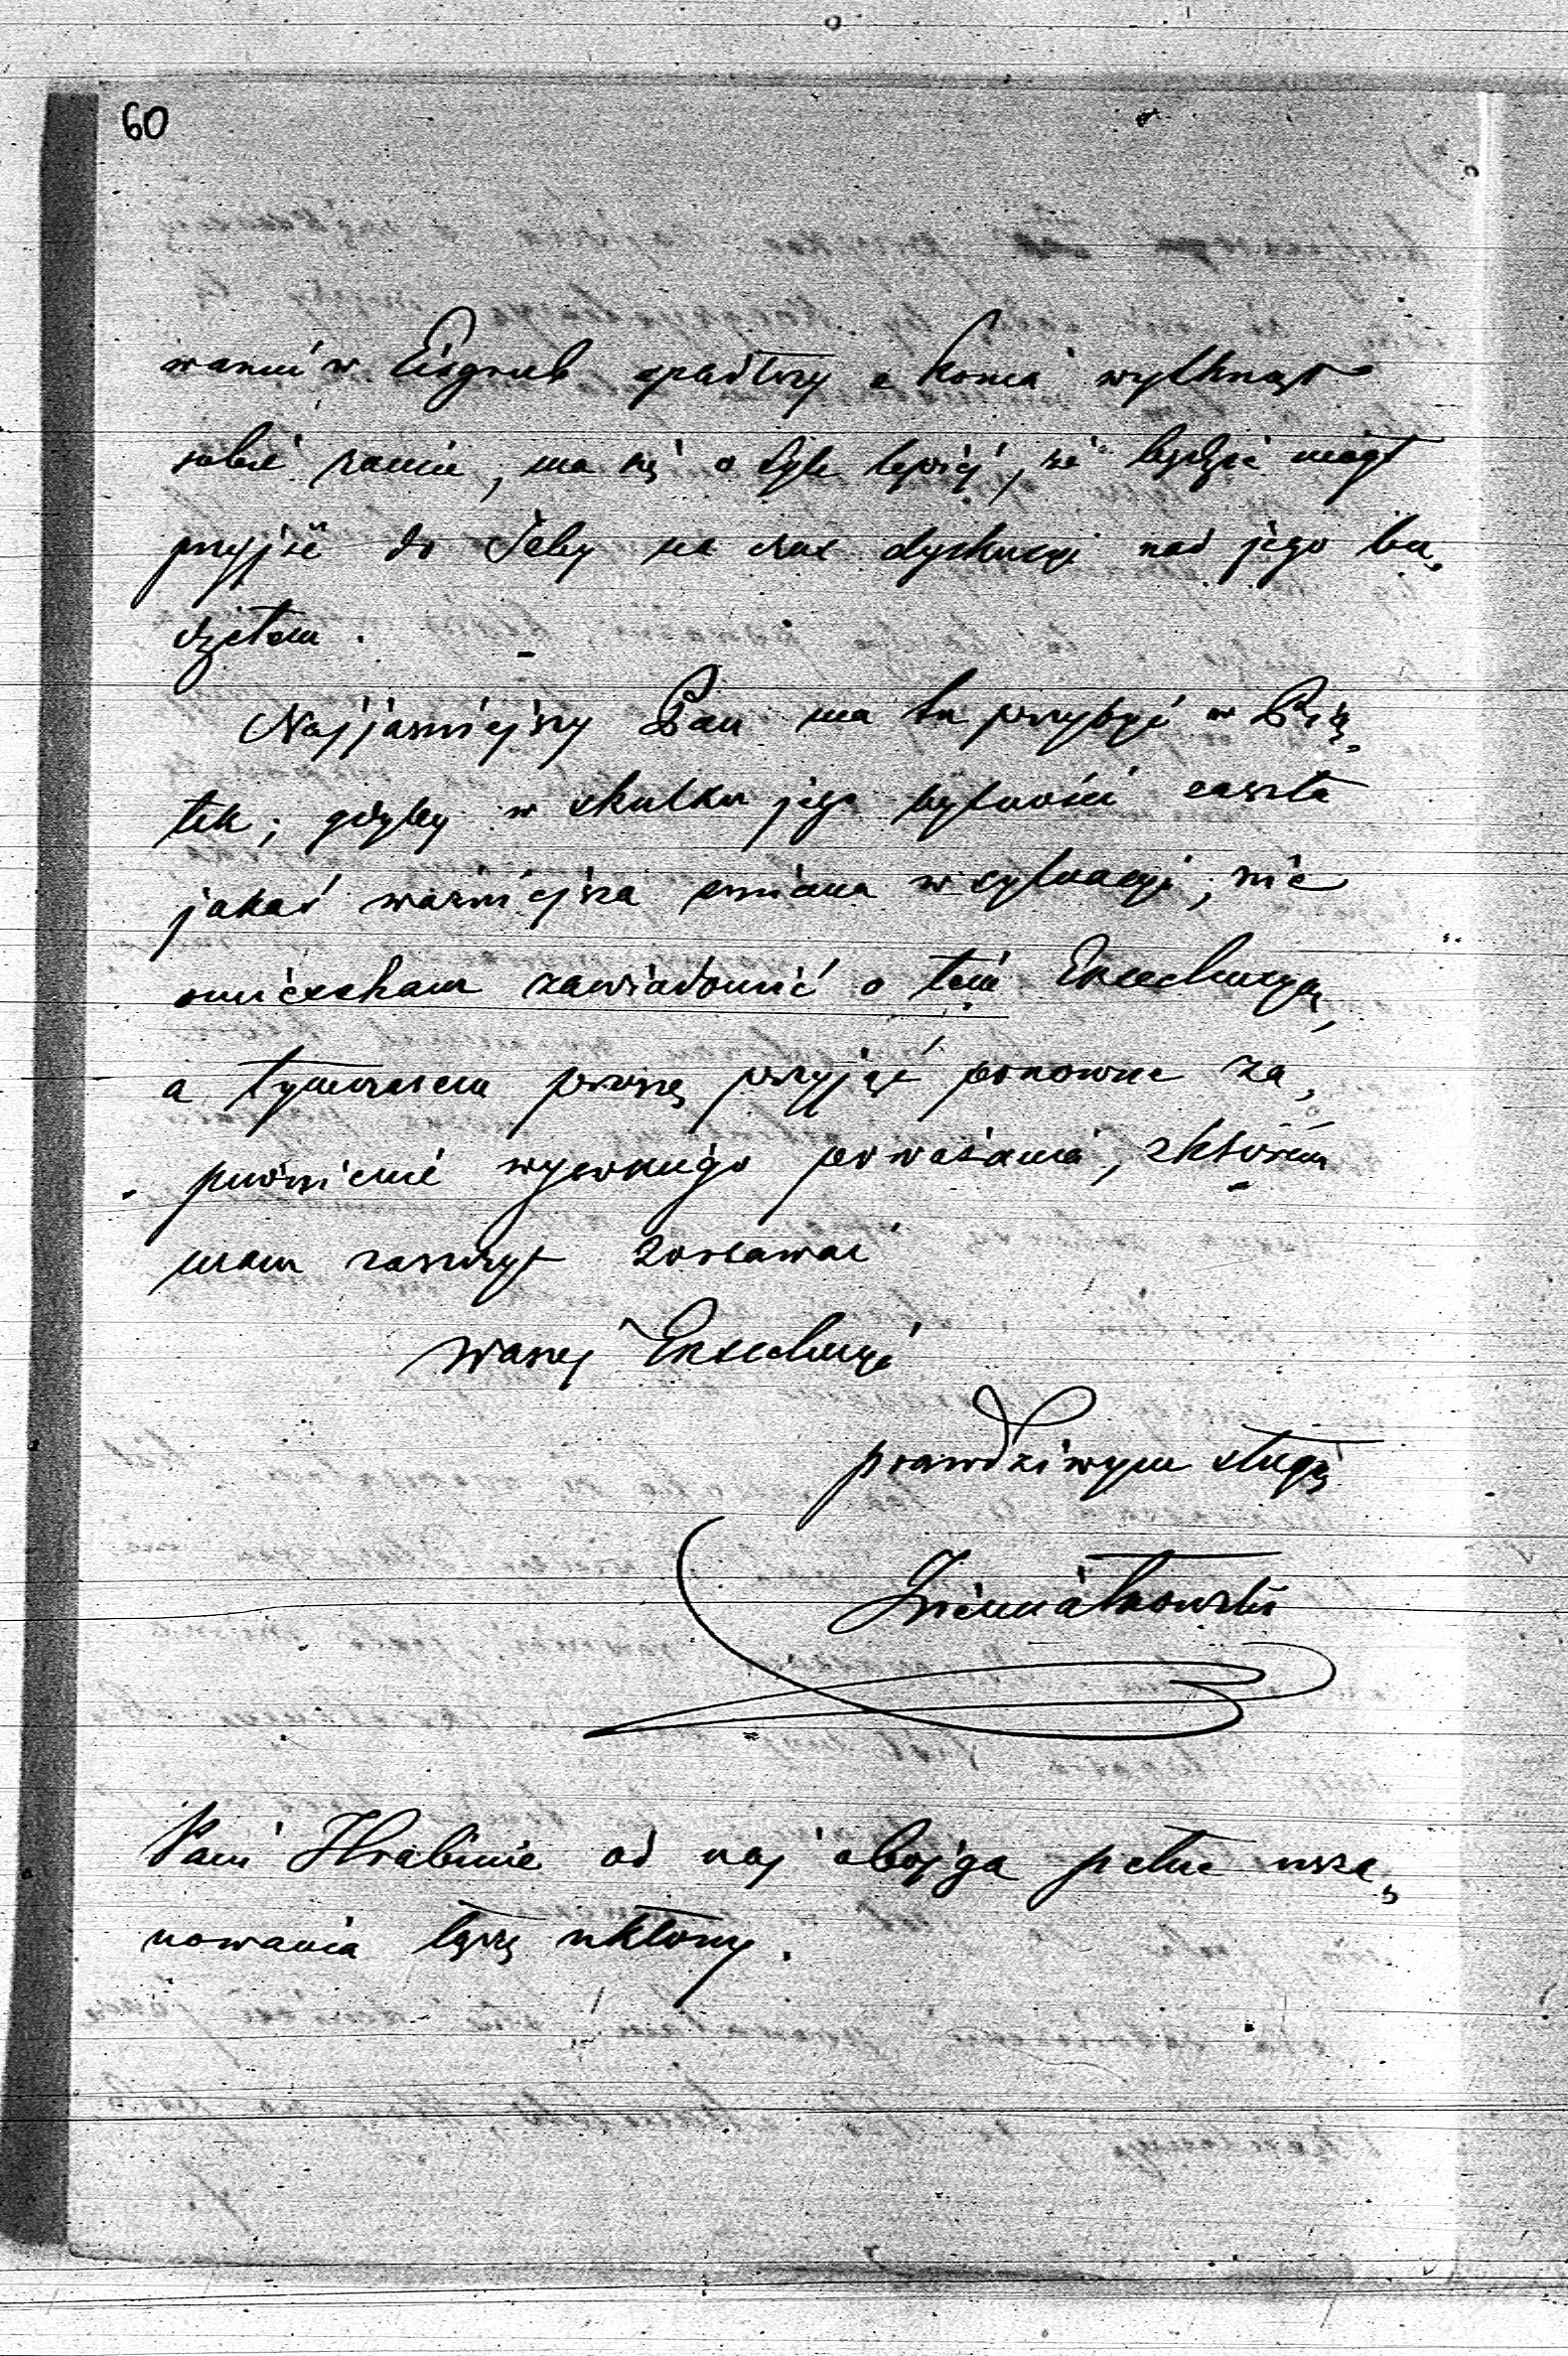 60
waniu w Eisgrub spadłszy z konia wytknąwszy
sobie ramie, ma się o tyle lepiej, że będzie mógł
przyjść do Izby na czas dyskusyi nad jego bu„
dżetem.
Najjaśniejszy Pan ma tu przybyć w Pią„
tek; gdyby w skutku jego bytności zaszła
jakaś ważniejsza zmiana w sytuacyi, nie
omieszkam zawiadomić o tem Excellencyą,
a tymczasem proszę przyjąć ponowne za„
pewnienie wysokiego poważania, z którem
mam zaszczyt zostawać
Waszej Excellencyi
prawdziwym sługą
Ziemiałkowski
Pani Hrabinie od nas obojga pełne usza„
nowania łączę ukłony.